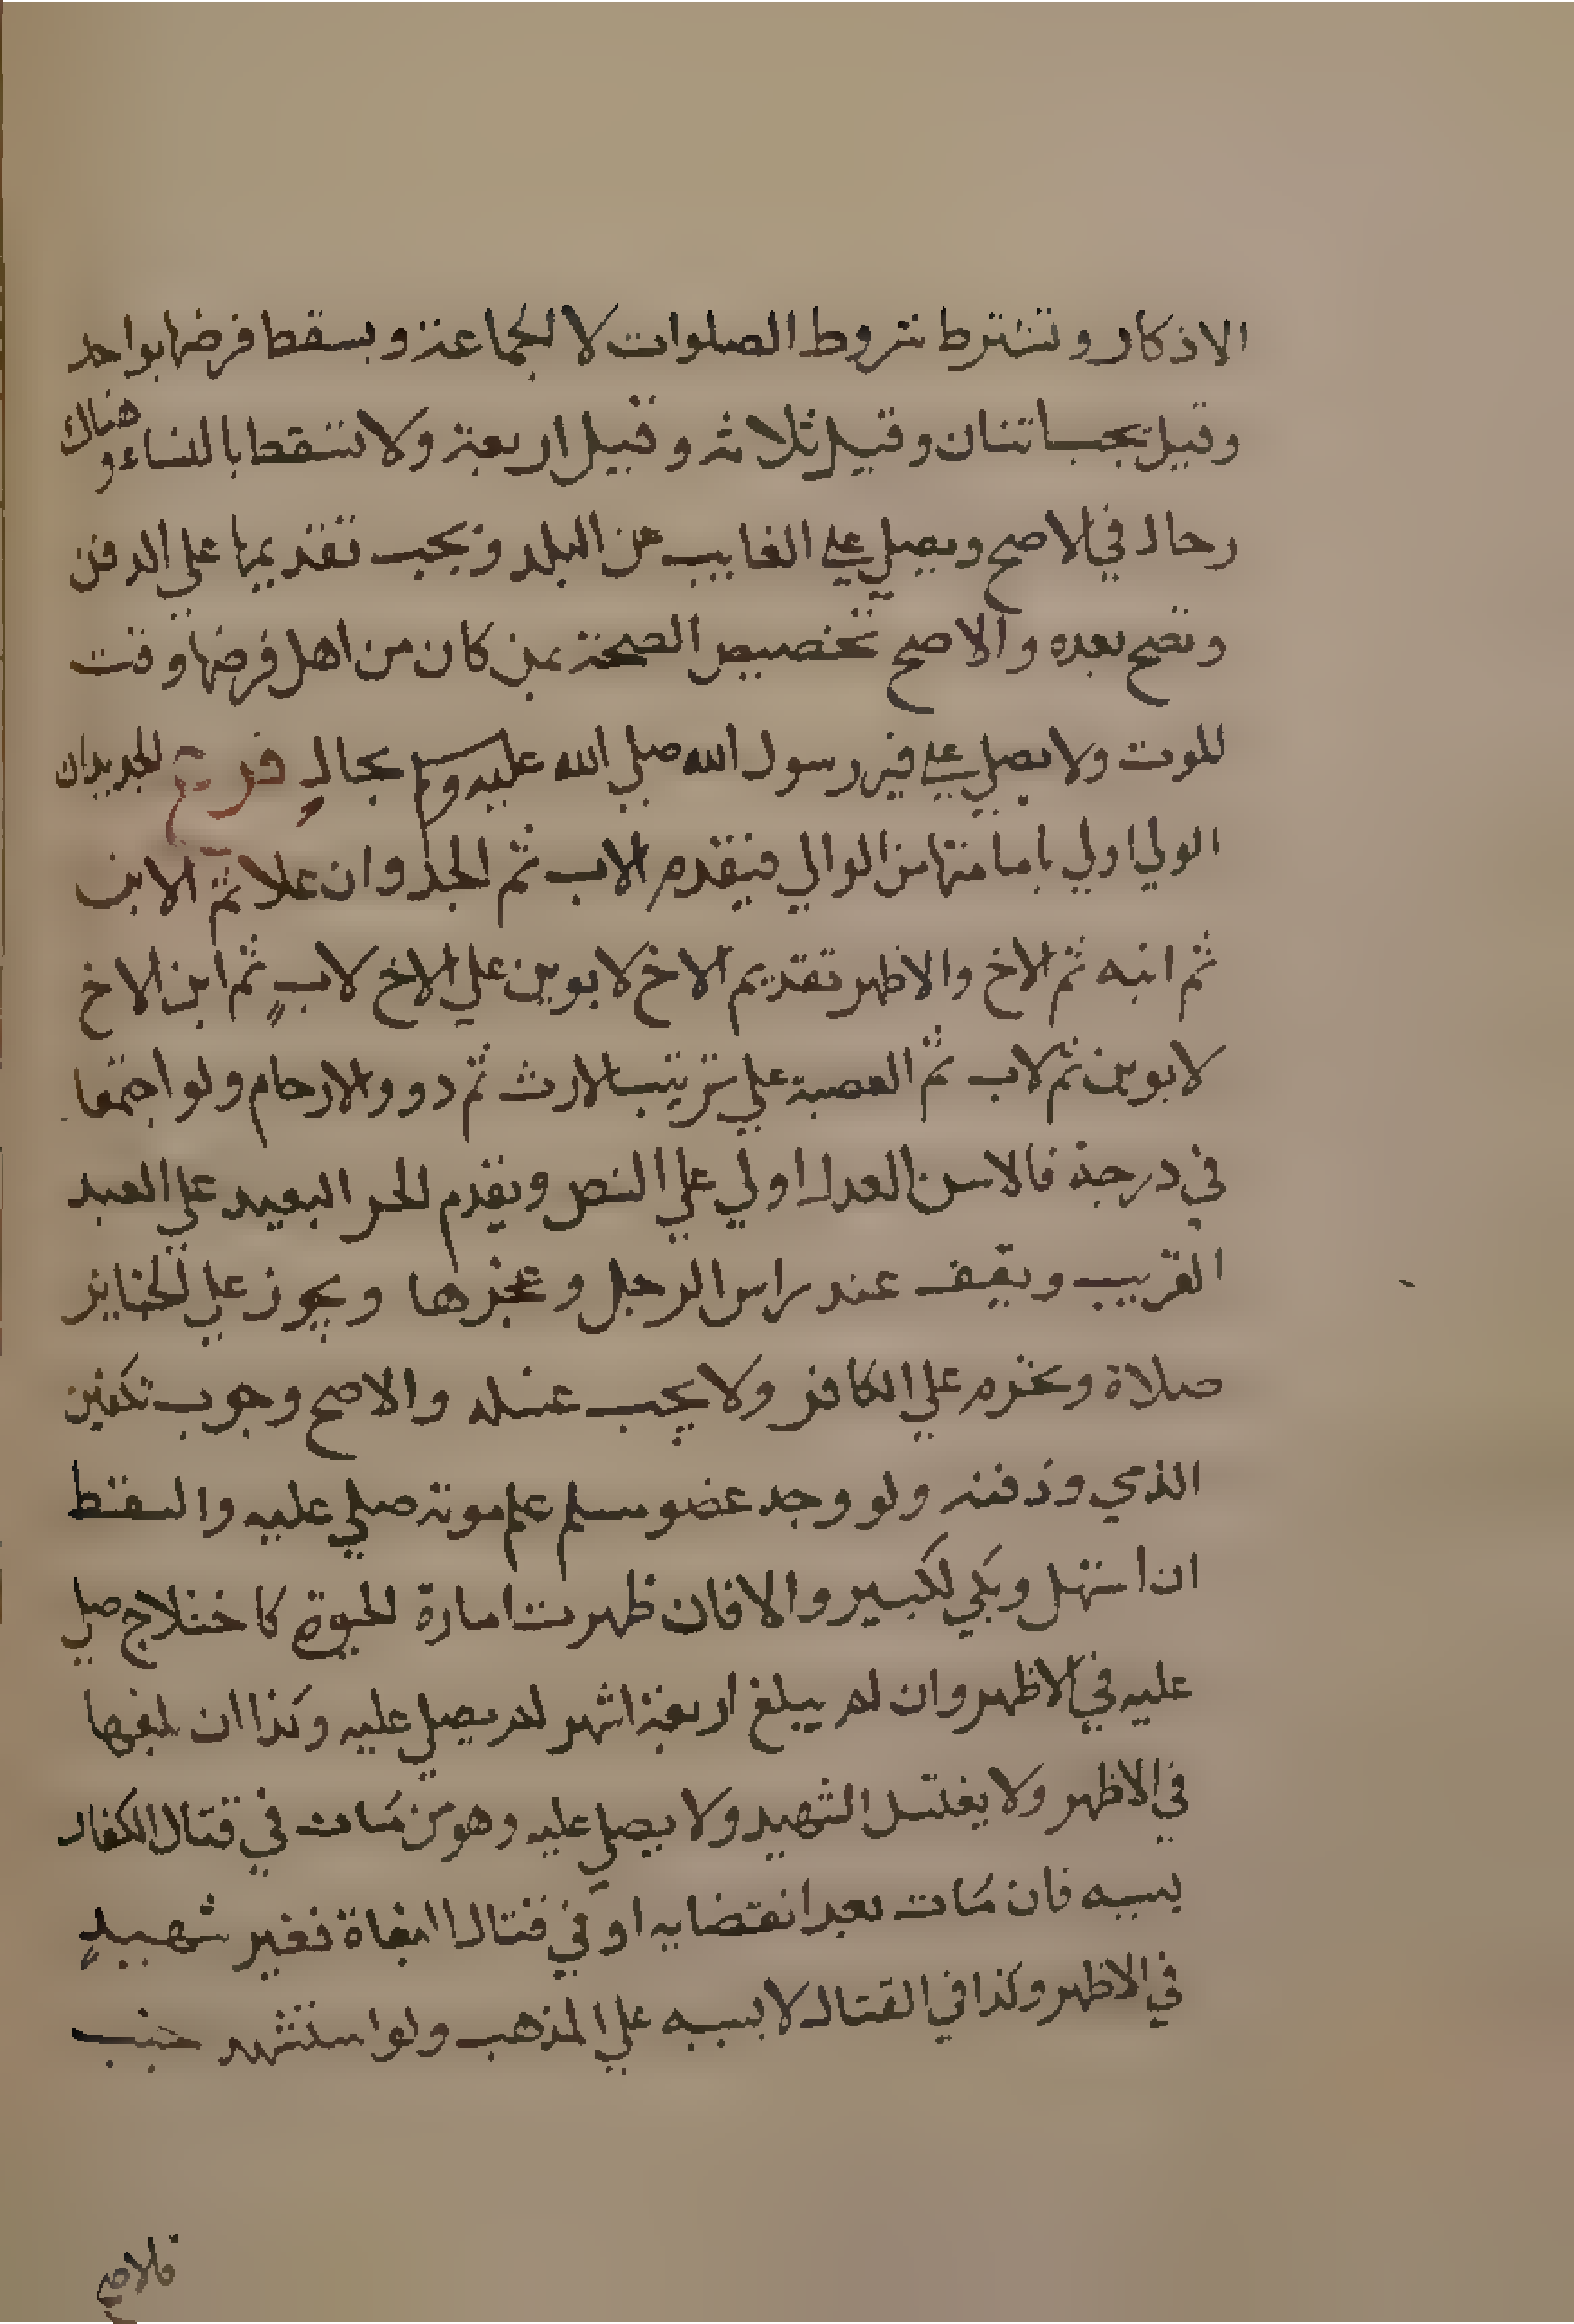 الاذكار وتشترط شروط الصلوات لا الجماعة ويسقط فرضها بواحد
وقيل يجب اثنان وقيل ثلاثة وقيل اربعة ولا تسقط بالنساء وهناك
رجال في الاصح ويصلي علي الغايب عن البلد ويجب تقديمها علي الدفن
وتصح بعده والاصح تخصيص الصحة بمن كان من اهل فرضها وقت
الموت ولا يصلي علي قبر رسول الله صلي الله عليه وسلم بحالٍ فرع الجديد ان
الولي اولي بامامتها من الوالي فيقدم الاب ثم الجد وان علا ثم الابن
ثم ابنه ثم الاخ والاظهر تقديم الاخ لابوين علي الاخ لابٍ ثم ابن الاخ
لابوين ثم لاب ثم العصبة علي ترتيب الارث ثم دوو الارحام ولو اجتمعا
في درجة فالاسن العدل اولي علي النص ويقدم الحر البعيد علي العبد
القريب ويقف عند راس الرجل وعجزها ويجوز علي الجنايز
صلاة وتحرم علي الكافر ولا يجب غسله والاصح وجوب تكفين
الذمي ودفنه ولو وجد عضو مسلم علم موته صلي عليه والسقط
ان استهل وبكي لكبير والا فان ظهرت امارة الحيوة كاختلاج صلي
عليه في الاظهر وان لم يبلغ اربعة اشهر لم يصل عليه وكذا ان بلغها
في الاظهر ولا يغتسل الشهيد ولا يصلي عليه وهو من مات في قتال الكفار
بسببه فان مات بعد انقضايه او في قتال البغاة فغير شهيدٍ
في الاظهر وكذا في القتال لا بسببه علي المذهب ولو استشهد جنب
فالاصح